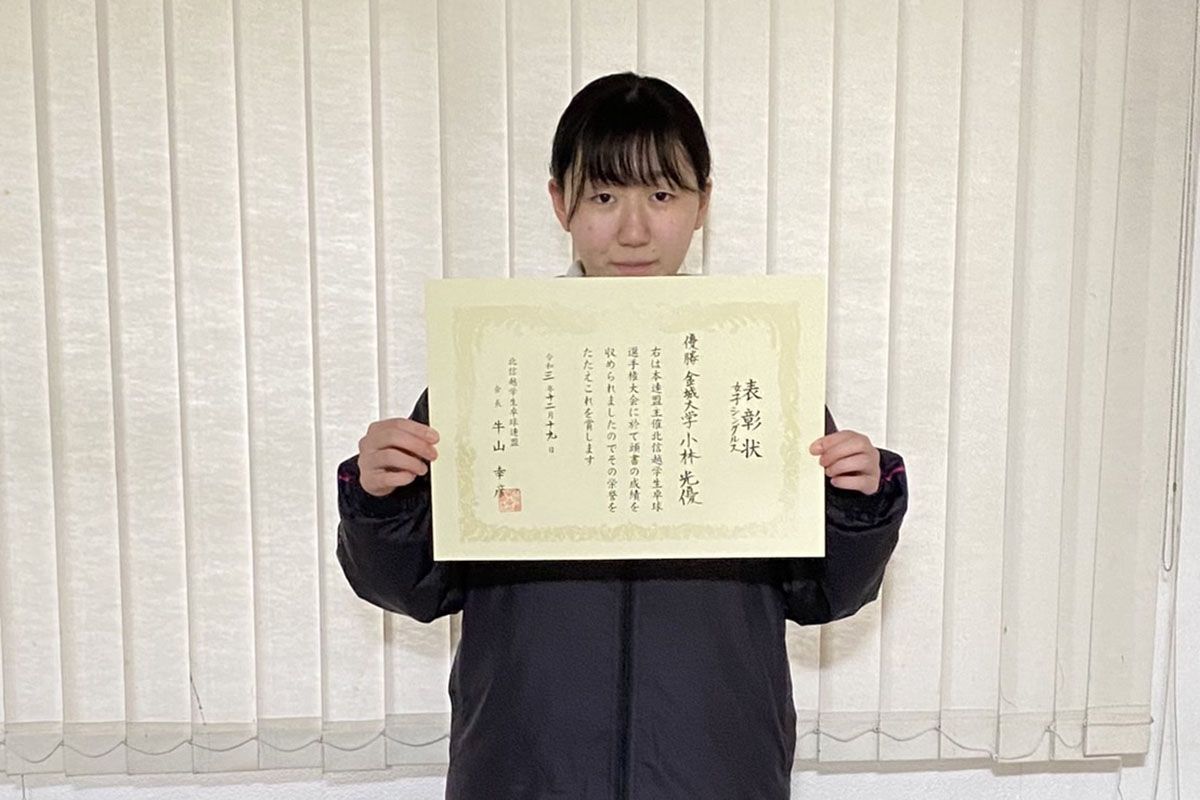 表彰状
女子シングルス
優勝 金城大学 小林 光優
右は本連盟主催北信越学生卓球
選手権大会に於て頭書の成績を
収められましたのでその栄誉を
たたえこれを賞します
令和三年十二月十九日
北信越学生卓球連盟
会長 牛山 幸彦